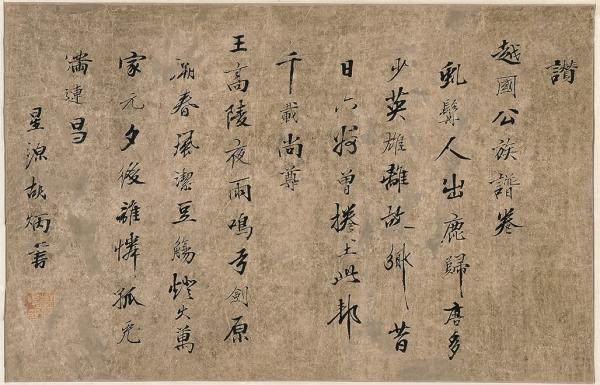 讚
越國公族譜卷
虬髯人出鹿歸唐多
少英雄離故鄉昔
日六州曾捲土此邦
千載尚尊
王高陵夜雨鳴弓劍原
廟春風潔豆觴燈火萬
家元夕後誰憐狐兔
滿連昌
星源胡炳書